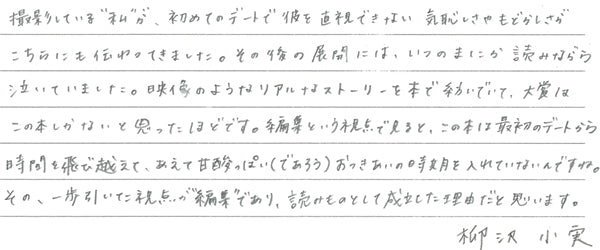 撮影している"私"が、初めてのデートで彼を直視できない気恥しさやもどかしさが
こちらにも伝わってきました。その後の展開には、いつのまにか読みながら
泣いていました。映像のようなリアルなストーリーを本で紡いでいて、大賞は
この本しかないと思ったほどです。編集という視点で見ると、この本は最初のデートから
時間を飛び越えて、あえて甘酸っぱい(であろう)おつきあいの時期を入れていないんですね。
その、一歩引いた視点が"編集"であり、読みものとして成立した理由だと思います。
柳沢 小実